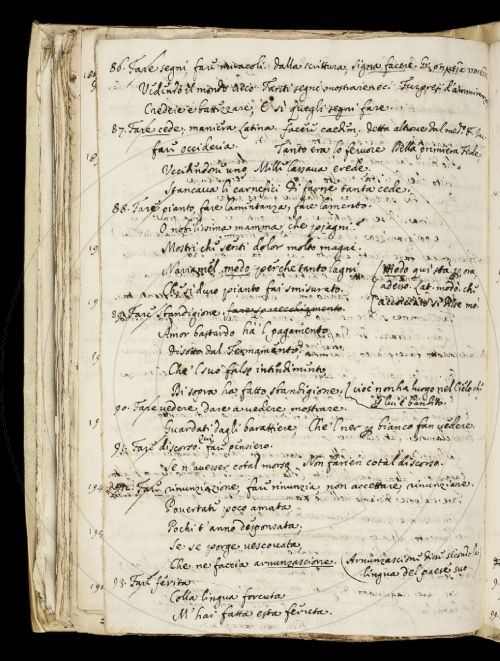 86. Fare segni, fare miracoli. dalla scrittura, signa facere. Gr. σημεῖα ποιεῖν
Vedendo il mondo cieco Tanti segni mostrareci.
Credere e battizzare, E si quegli segni fare.
87. Fare cede, maniera latina. Facere caedem. Detta altrove dal med.
fare occideria. Tanto era lo fervore Nella primiera Fede,
Uccidendone uno Mille lassava erede.
Stancava li carnefici Di farne tanta cede.
88. Fare pianto, fare lamentanza, fare lamento.
O nobilissima mamma, che piagni?
Mostri che senti dolor molto magni.
Narramel modo, perche tanto lagni (Modo qui sta per ora
Che si duro pianto fai smisurato. adesso. Lat. modo. che
89. Fare sbandigione,
Amor bastardo hà 'l pagamento
Disotto dal Fermamento;
Che 'l suo falso intendimento
Di sopra ha fatto sbandigione. (cioè non ha luogo nel Cielo, che
90. Fare vedere, dare a vedere, mostrare. lui è bandito.
Guardati dagli barattiere Che 'l ner per bianco fan vedere
91. Fare discorso, fare pensiero.
Se n'avesser cotal morso Non farien cotal discorso.
92. Fare rinunziazione, fare rinunzia, non accettare, rinunziare.
Povertate poco amata
Pochi t'anno desponsata,
Se se porge vescovata
Che ne faccia arnunzascione. (Arnunzascione disse secondo la
lingua del paese suo
93. Fare ferita
Colla lingua forcuta
M'hai fatta esta feruta.